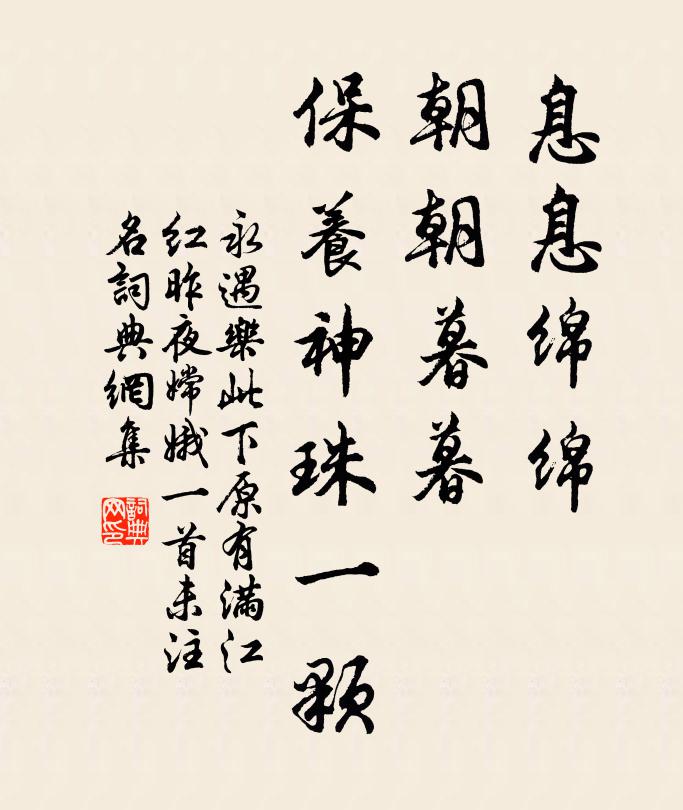 息息绵绵
朝朝暮暮
保養神珠一顆
永遇樂此下原有滿江
红昨夜嫦娥一首未注
名詞典網集
詞典
网印